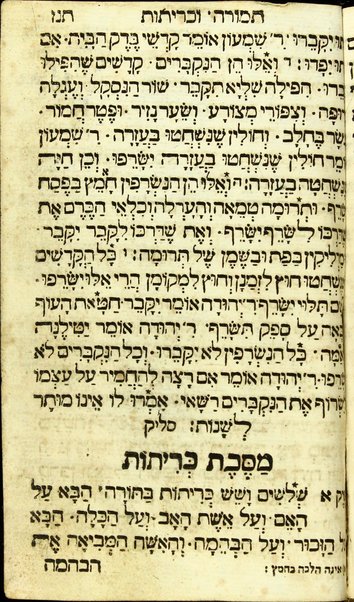 תמורה · וכריתות תנז
ותו יקברו · ר׳ שמעון אומר קדשי בדק הבית · אם
תו יפדו : י ואלו הן הנקברים · קדשים שהפילו
ברו · הפילה שליא תקבר · שור הנסקל · ועגלה
ופה · וצפורי מצורע · ושער נזיר · ופטר חמור ·
שר בחלב · וחולין שנשחטו בעזרה · ר׳ שמעון
מר חולין שנשחטו בעזרה ישרפו · וכן חיה
נשחטה בעזרה : ואלו הן הנשרפין חמץ בפסח
רף · ותרומה טמאה והערלה וכלאי הכרם את
דרכו לשרף ישרף · ואת שדרכו לקבר יקבר ·
מדליקין בפת ובשמן של תרומה : כל הקדשים
שחטו חוץ לזמנן וחוץ למקומן הרי אלו ישרפו ·
ם תלוי ישרף ר׳ יהודה אומר יקבר · חטאת העוף
באה על ספק תשרף · ר׳ יהודה אומר יטילנה
אמה · כל הנשרפין לא יקברו · וכל הנקברים לא
רפו · ר׳ יהודה אומר אם רצה להחמיר על עצמו
שרוף את הנקברים רשאי · אמרו לו אינו מותר
לשנות : סליק
מסכת כריתות
וק א שלשים ושש כריתות בתורה הבא על
האם · ועל אשת האב · ועל הכלה · הבא
ל הזכור · ועל הבהמה · והאשה המביאה את
אינה הלכה בחמץ : הבהמה